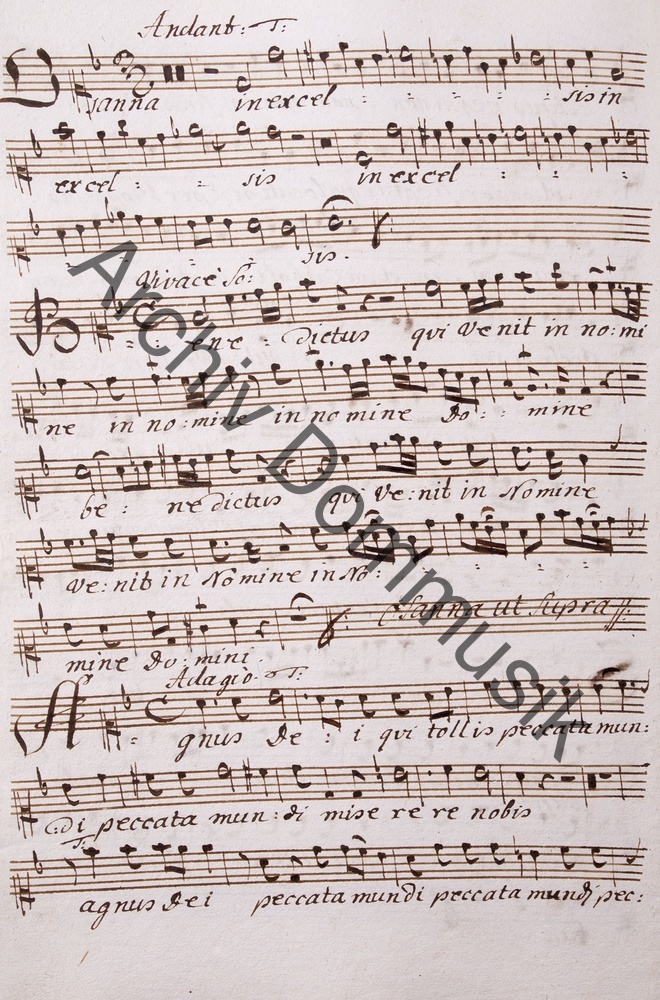 Andant: T:
Osanna in excel : : : sis in
excel : : sis in excel : : :
: : : : sis.
Vivace So:
Bene : dictus qui Venit in no:mi
ne in no:mine in nomine Do : : mine
be : ne dictus qui Ve:nit in Nomine
Ve:nit in Nomine in No:
mine Do:mini. Osanna ut Supra
Adagio. T:
Agnus De : i qui tollis peccata mun:
:di peccata mun:di mise re re nobis
T:
agnus Dei peccata mundi peccata mundi pec:
Archiv Dommusik